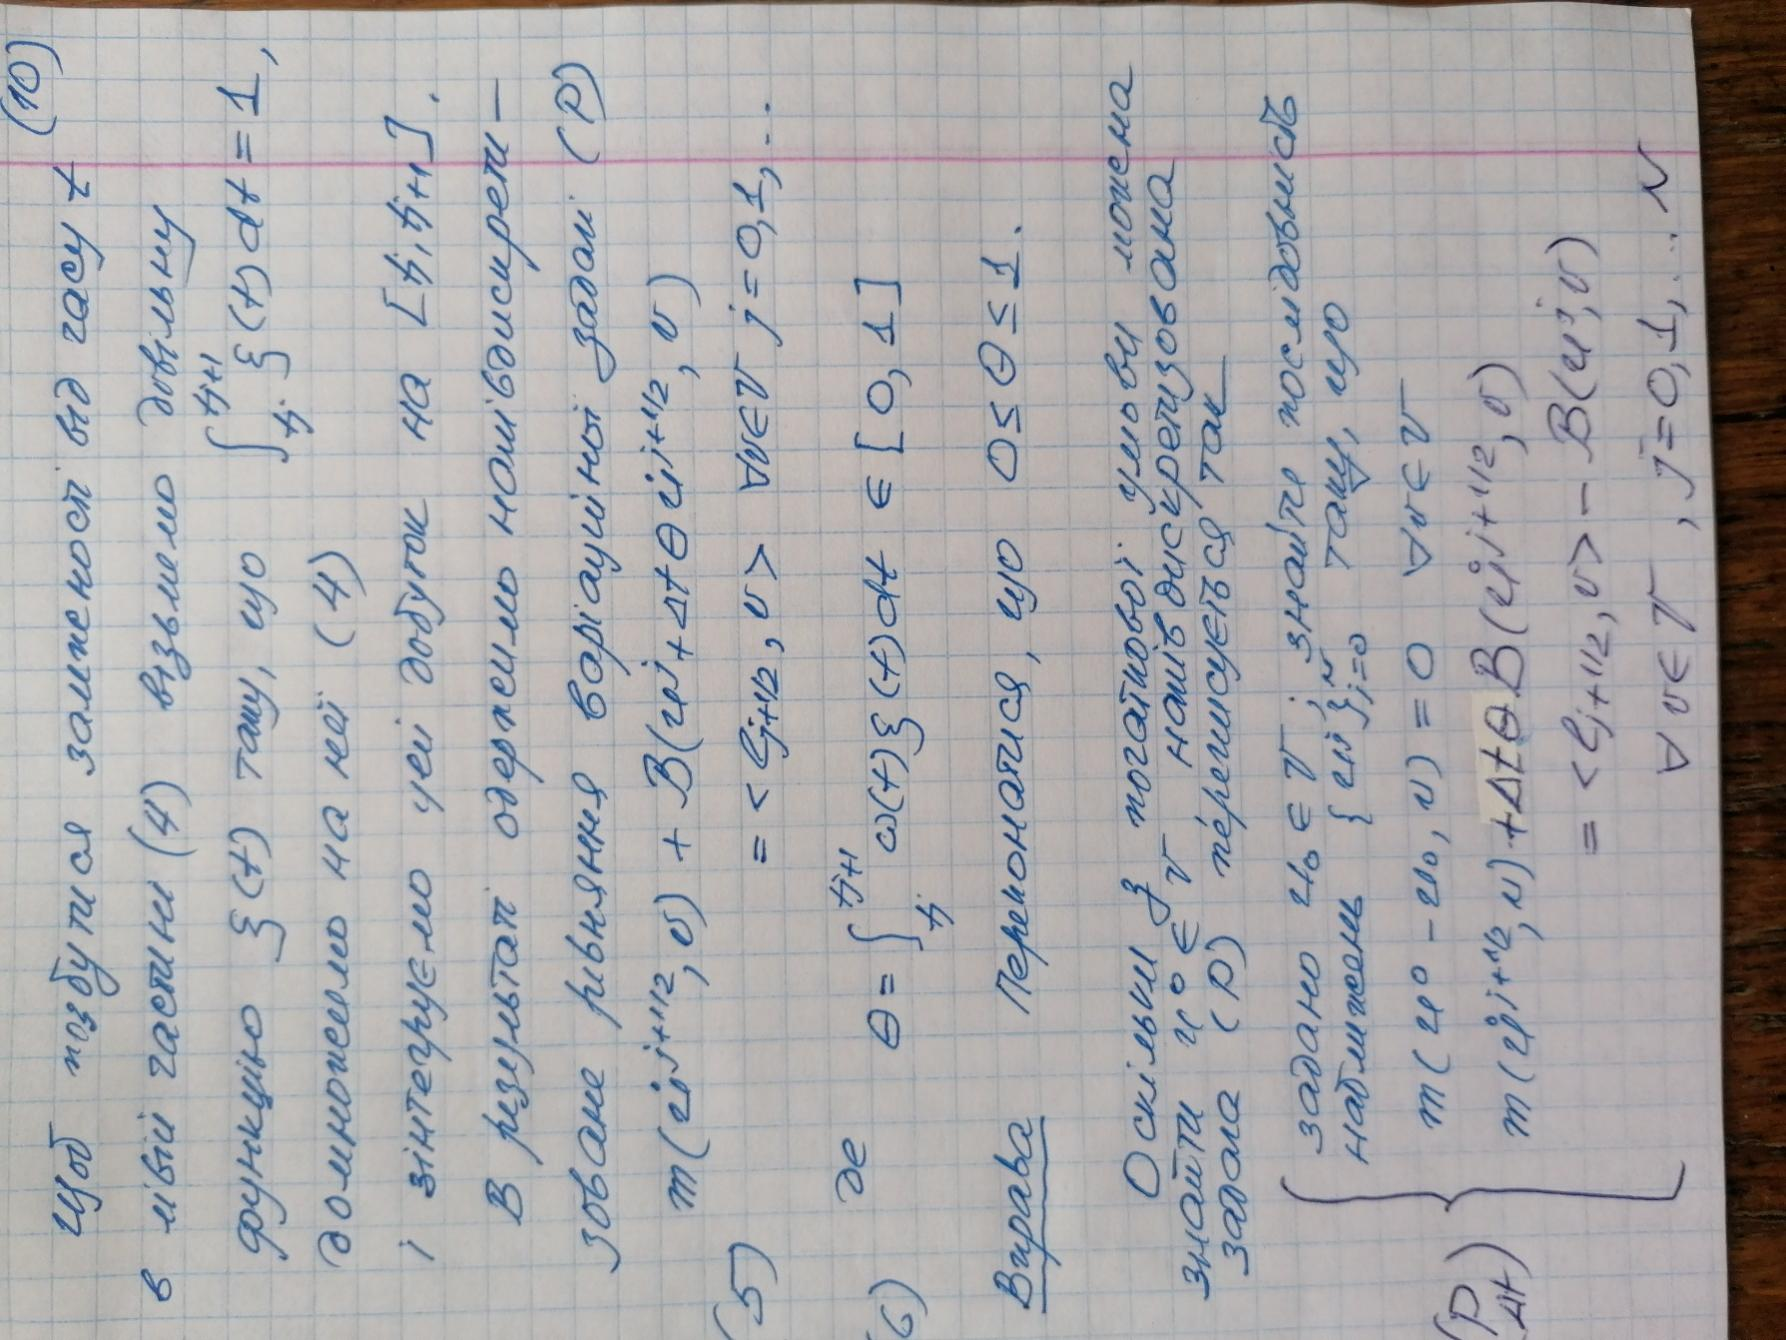 (10)
Щоб позбутися залежності від часу t
в лівій частині (4) візьмемо довільну
функцію ξ(t) таку, що ∫_{t_j}^{t_{j+1}} ξ(t)dt = 1,
домножемо на неї (4)
і зінтегруємо цей добуток на [t_j, t_{j+1}].
В результаті одержемо напівдискрети-
зоване рівняння варіаційної задачі (P)
m(u̇^{j+1/2}, v) + B(u^j + Δtθ u̇^{j+1/2}, v)
(5) = <l_{j+1/2}, v> ∀v∈V j=0,1,...
де θ = ∫_{t_j}^{t_{j+1}} ω(t)ξ(t)dt ∈ [0, 1]
(6)
Вправа Переконатися, що 0 ≤ θ ≤ 1.
Оскільки з початкової умови можена
знайти u^0 ∈ V напівдискретизована
задача (P) переписується так
задано u_0 ∈ V; знайти послідовність
наближень {u^j}_{j=0}^N таку, що
m(u^0 - u_0, v) = 0 ∀v∈V
(P_{Δt}) m(u̇^{j+1/2}, v) + Δtθ B(u̇^{j+1/2}, v)
= <l_{j+1/2}, v> - B(u^j, v)
∀v∈V, j=0,1,...N